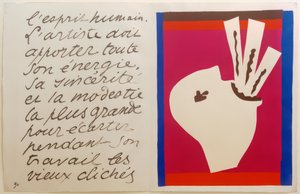 l'esprit humain.
L'artiste doit
apporter toute
son énergie,
sa sincérité
et la modestie
la plus grande
pour écarter
pendant son
travail les
vieux clichés